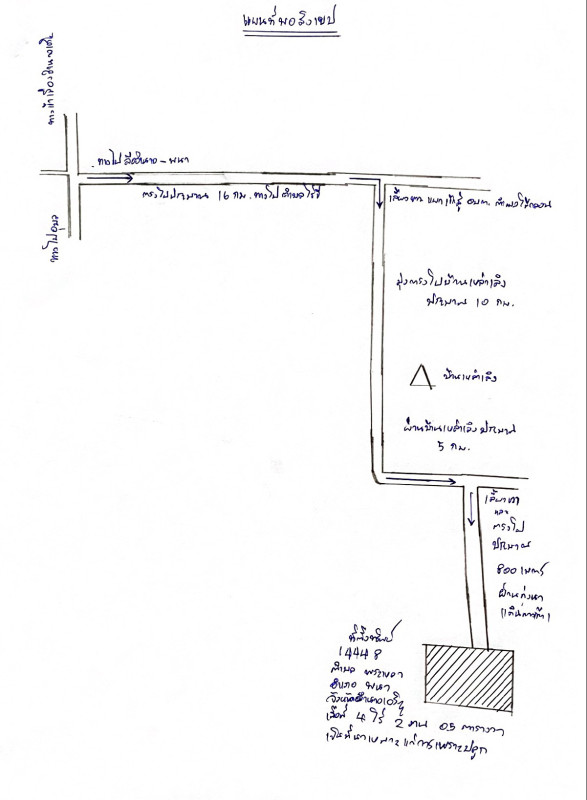 แผนที่พอสังเขป
ทางไป
ทางไปอุบล
ทางไปลืออำนาจ - พนา
ตรงไปประมาณ 16 กม. ทางไปตำบลไร่ขี
เลี้ยวขวา เข้าสู่ อบต.
มุ่งตรงไปบ้านเหล่าเลิง
ประมาณ 10 กม.
บ้านเหล่าเลิง
ผ่านบ้านเหล่าเลิงประมาณ
5 กม.
เลี้ยวขวา
และ
ตรงไป
ประมาณ
800 เมตร
ผ่านทุ่งนา
ที่ตั้งทรัพย์
14448
ตำบล พระเหลา
อำเภอ พนา
จังหวัดอำนาจเจริญ
เนื้อที่ 4 ไร่ 2 งาน 05 ตารางวา
เป็นที่นาเหมาะแก่การเพาะปลูก